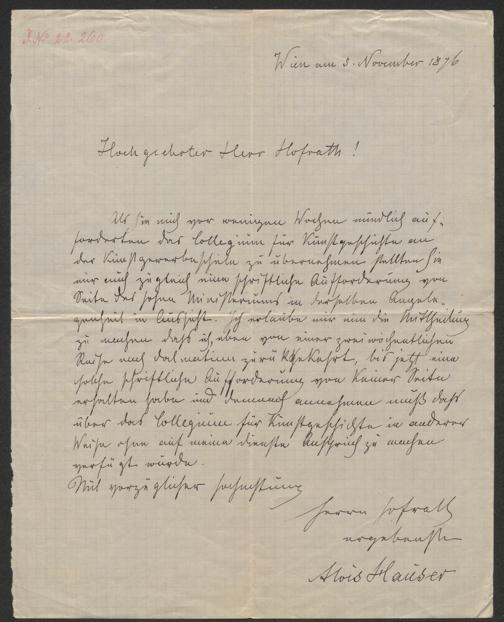 I.N. 22.260
Wien am 5. November 1876
Hochgeehrter Herr Hofrath!
Als Sie mich vor wenigen Wochen mündlich auf-
forderten das Collegium für Kunstgeschichte an
der Kunstgewerbeschule zu übernehmen stellten Sie
mir auch zugleich eine schriftliche Aufforderung von
Seite des hohen Ministeriums in derselben Angele-
genheit in Aussicht. Ich erlaube mir nun die Mittheilung
zu machen daß ich, eben von einer zweiwöchentlichen
Reise nach Dalmatien zurückgekehrt, bis jetzt eine
solche schriftliche Aufforderung von keiner Seite
erhalten habe und demnach annehmen muß daß
über das Collegium für Kunstgeschichte in anderer
Weise ohne auf meine Dienste Anspruch zu machen
verfügt wurde.
Mit vorzüglicher Hochachtung
Herrn Hofrath
ergebenster
Alois Hauser